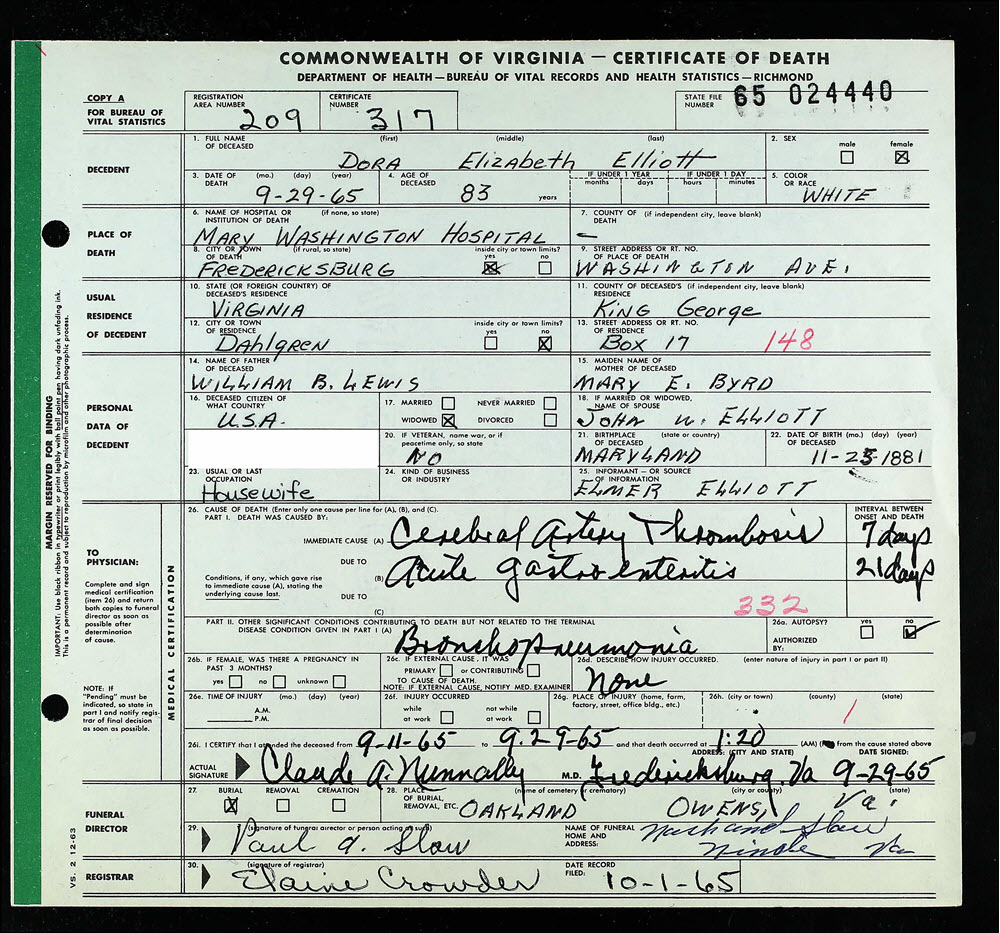 COMMONWEALTH OF VIRGINIA — CERTIFICATE OF DEATH
DEPARTMENT OF HEALTH—BUREAU OF VITAL RECORDS AND HEALTH STATISTICS—RICHMOND
COPY A
FOR BUREAU OF
VITAL STATISTICS
REGISTRATION
AREA NUMBER 209
CERTIFICATE
NUMBER 317
STATE FILE
NUMBER 65 024440
DECEDENT
1. FULL NAME OF DECEASED (first) (middle) (last)
DORA Elizabeth Elliott
2. SEX male female ☒
3. DATE OF DEATH (mo.) (day) (year)
9-29-65
4. AGE OF DECEASED 83 years
IF UNDER 1 YEAR months days
IF UNDER 1 DAY hours minutes
5. COLOR OR RACE
WHITE
PLACE OF
DEATH
6. NAME OF HOSPITAL OR INSTITUTION OF DEATH (if none, so state)
MARY WASHINGTON HOSPITAL
7. COUNTY OF DEATH (if independent city, leave blank)
—
8. CITY OR TOWN OF DEATH (if rural, so state) inside city or town limits? yes ☒ no ☐
FREDERICKSBURG
9. STREET ADDRESS OR RT. NO. OF PLACE OF DEATH
WASHINGTON AVE.
USUAL
RESIDENCE
OF DECEDENT
10. STATE (OR FOREIGN COUNTRY) OF DECEASED'S RESIDENCE
VIRGINIA
11. COUNTY OF DECEASED'S RESIDENCE (if independent city, leave blank)
KING George
12. CITY OR TOWN OF RESIDENCE inside city or town limits? yes ☐ no ☒
DAhlgREN
13. STREET ADDRESS OR RT. NO. OF RESIDENCE
Box 17 148
PERSONAL
DATA OF
DECEDENT
14. NAME OF FATHER OF DECEASED
WILLIAM B. LEWIS
15. MAIDEN NAME OF MOTHER OF DECEASED
MARY E. BYRD
16. DECEASED CITIZEN OF WHAT COUNTRY
U.S.A.
17. MARRIED ☐ NEVER MARRIED ☐
WIDOWED ☒ DIVORCED ☐
18. IF MARRIED OR WIDOWED, NAME OF SPOUSE
JOHN W. ELLIOTT
20. IF VETERAN, name war, or if peacetime only, so state
NO
21. BIRTHPLACE OF DECEASED (state or country)
MARYLAND
22. DATE OF BIRTH (mo.) (day) (year) OF DECEASED
11-25-1881
23. USUAL OR LAST OCCUPATION
Housewife
24. KIND OF BUSINESS OR INDUSTRY
25. INFORMANT — OR SOURCE OF INFORMATION
ELMER ELLIOTT
MARGIN RESERVED FOR BINDING
IMPORTANT: Use black ribbon in typewriter or print legibly with ball point pen, having dark unfading ink.
This is a permanent record and subject to reproduction by microfilm and other photographic process.
TO
PHYSICIAN:
Complete and sign
medical certification
(item 26) and return
both copies to funeral
director as soon as
possible after
determination
of cause.
NOTE: If
"Pending" must be
indicated, so state in
part I and notify regis-
trar of final decision
as soon as possible.
MEDICAL CERTIFICATION
26. CAUSE OF DEATH (Enter only one cause per line for (A), (B), and (C).
PART I. DEATH WAS CAUSED BY:
INTERVAL BETWEEN
ONSET AND DEATH
IMMEDIATE CAUSE (A) Cerebral Artery Thrombosis 7 days
DUE TO
(B) Acute gastroenteritis 21 days
Conditions, if any, which gave rise
to immediate cause (A), stating the
underlying cause last.
DUE TO
(C) 332
PART II. OTHER SIGNIFICANT CONDITIONS CONTRIBUTING TO DEATH BUT NOT RELATED TO THE TERMINAL
DISEASE CONDITION GIVEN IN PART I (A)
Bronchopneumonia
26a. AUTOPSY? yes ☐ no ☑
AUTHORIZED
BY:
26b. IF FEMALE, WAS THERE A PREGNANCY IN
PAST 3 MONTHS?
yes ☐ no ☐ unknown ☐
26c. IF EXTERNAL CAUSE, IT WAS
PRIMARY ☐ or CONTRIBUTING ☐
TO CAUSE OF DEATH.
NOTE: IF EXTERNAL CAUSE, NOTIFY MED. EXAMINER
26d. DESCRIBE HOW INJURY OCCURRED. (enter nature of injury in part I or part II)
None
26e. TIME OF INJURY (mo.) (day) (year)
A.M.
P.M.
26f. INJURY OCCURRED
while at work ☐ not while at work ☐
26g. PLACE OF INJURY (home, farm,
factory, street, office bldg., etc.)
26h. (city or town) (county) (state)
26i. I CERTIFY that I attended the deceased from 9-11-65 to 9-29-65 and that death occurred at 1:20 (AM) from the cause stated above
ACTUAL
SIGNATURE Claude A. Nunnally M.D.
ADDRESS: (CITY AND STATE) Fredericksburg, Va
DATE SIGNED: 9-29-65
FUNERAL
DIRECTOR
27. BURIAL ☒ REMOVAL ☐ CREMATION ☐
28. PLACE OF BURIAL, REMOVAL, ETC. (name of cemetery or crematory) (city or county) (state)
OAKLAND OWENS, Va.
29. (signature of funeral director or person acting as such)
Paul A. Slaw
NAME OF FUNERAL
HOME AND
ADDRESS: Nash and Slaw
Ninde Va
REGISTRAR
30. (signature of registrar)
Elaine Crowder
DATE RECORD
FILED: 10-1-65
VS. 2 12-63